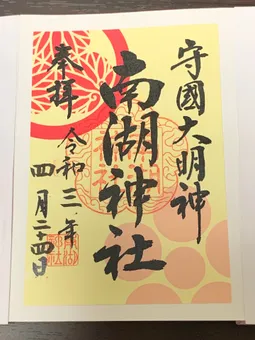 守國大明神
南湖神社
奉拝
令和三年
四月二十四日